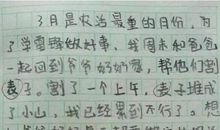 3月是农活最重的月份，为
了学雷锋做好事，我周末和爸爸
一起回到爷爷奶奶家，帮他们割
麦子。割了一个上午，麦子堆成
了小山，我已经累到不行了。想